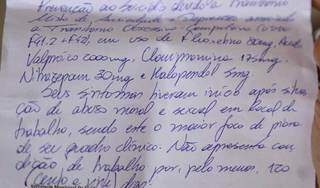 Prevenção ao suicídio devido a Transtorno
Misto de Ansiedade e Depressão associado
a Transtorno Obsessivo Compulsivo (
F41.2 + F42), em uso de Fluoxetina 80mg,
Valpróico 2000mg, Clomipramina 175mg,
Nitrazepam 20mg e Haloperidol 5mg.
Seus sintomas tiveram início após situa-
ção de abuso moral e sexual em local de
trabalho, sendo este o maior foco de piora
de seu quadro clínico. Não apresenta con-
dição de trabalho por, pelo menos, 120
(cento e vinte) dias.